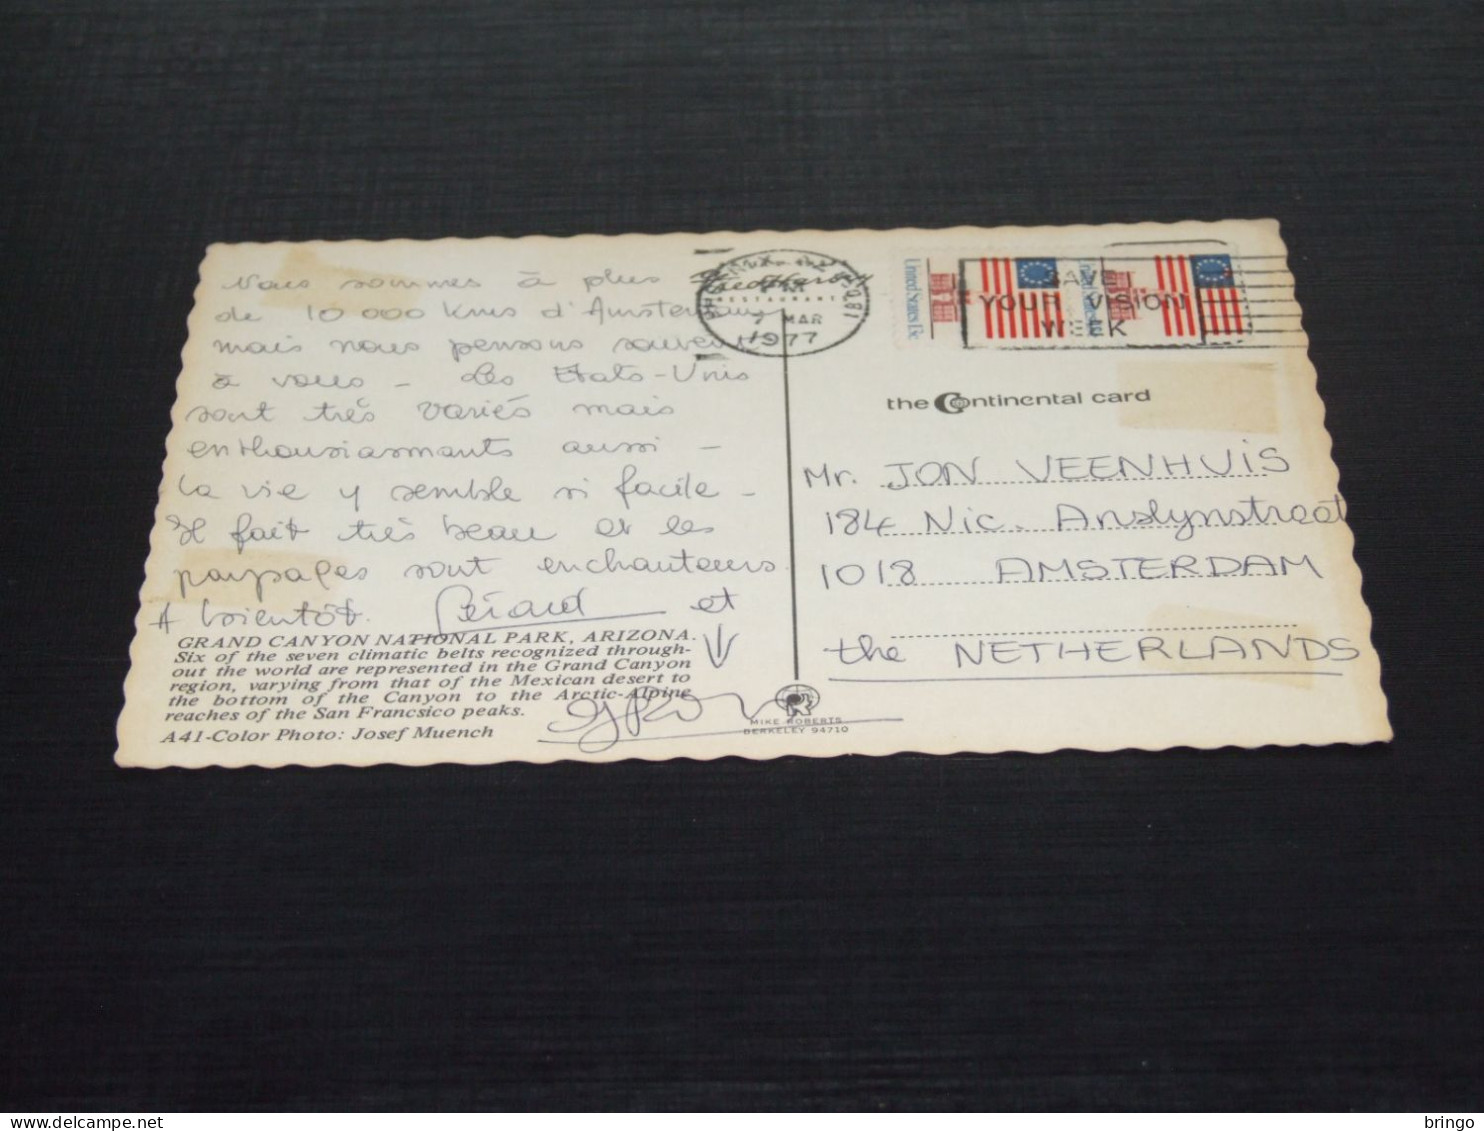 Nous sommes à plus
de 10 000 kms d'Amsterdam
mais nous pensons souvent
à vous - Les Etats-Unis
sont très variés mais
enthousiasmants aussi -
la vie y semble si facile -
Il fait très beau et les
paysages sont enchanteurs.
A bientôt. Gérard et
GRAND CANYON NATIONAL PARK, ARIZONA.
Six of the seven climatic belts recognized through-
out the world are represented in the Grand Canyon
region, varying from that of the Mexican desert to
the bottom of the Canyon to the Arctic-Alpine
reaches of the San Francsico peaks.
A41-Color Photo: Josef Muench
RESTAURANT
7 MAR
1977
United States 13c
United States
SAVE
YOUR VISION
WEEK
the Continental card
Mr. JON VEENHUIS
184 Nic. Anslynstreet
1018 AMSTERDAM
the NETHERLANDS
MIKE ROBERTS
BERKELEY 94710
bringo